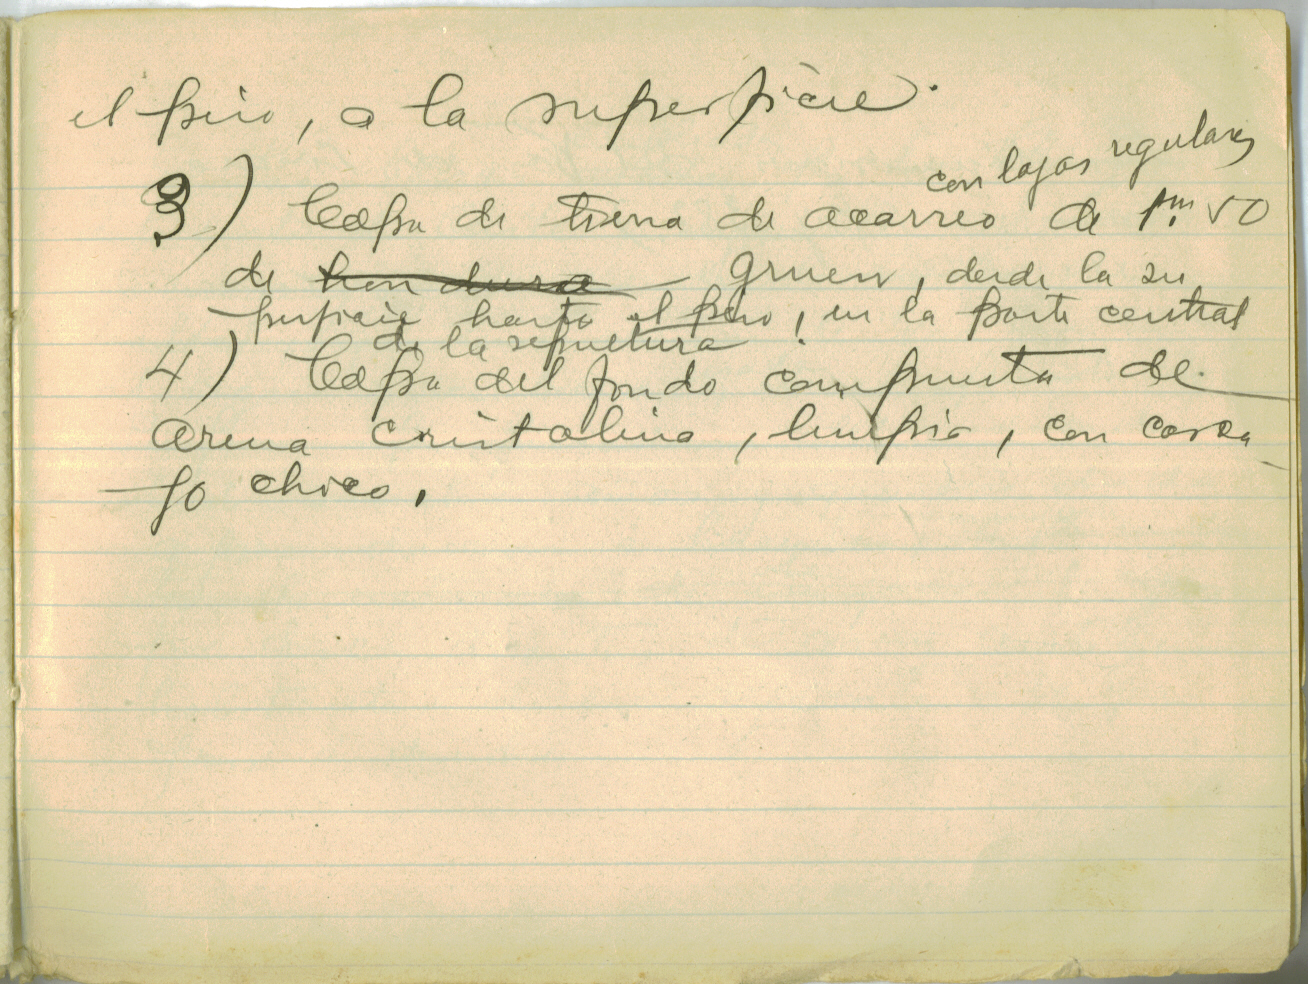 el piso, a la superficie.
con lajas regulares
3) Capa de tierra de acarreo de 1m. 50
de hondura grueso, desde la su
perficie hasta el piso, en la parte central
de la sepultura.
4) Capa del fondo compuesta de
arena cristalina, limpia, con casca
jo chico.